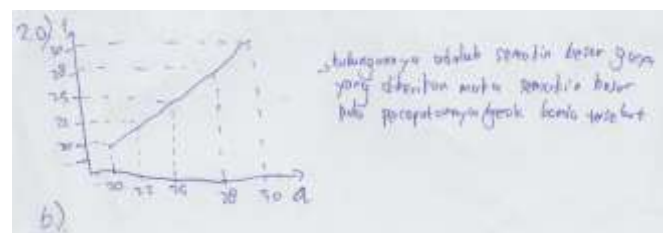 2a) f
30
28
25
22
20
20 22 25 28 30 a
→ hubungannya adalah semakin besar gaya
yang diberikan maka semakin besar
pula percepatannya/gerak benda tersebut
b)